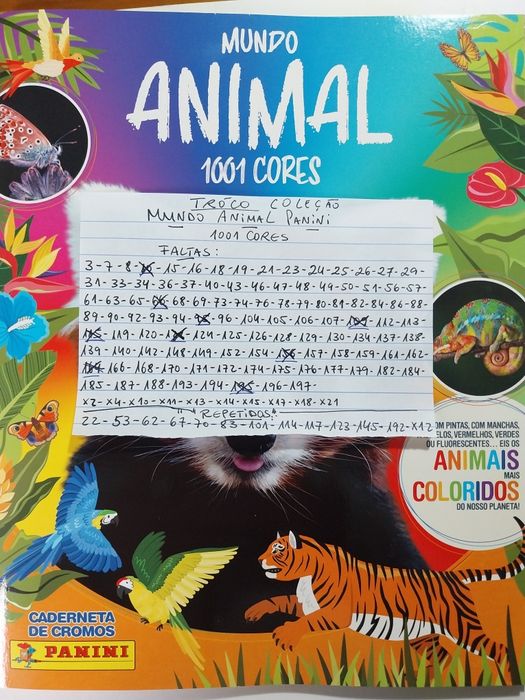 MUNDO
ANIMAL
1001 CORES
TROCO COLEÇÃO
MUNDO ANIMAL PANINI
1001 CORES
FALTAS:
3-7-8- -15-16-18-19-21-23-24-25-26-27-29-
31-33-34-36-37-40-43-46-47-48-49-50-51-56-57-
61-63-65- -68-69-73-74-76-78-79-80-81-82-84-86-88-
89-90-92-93-94- -96-104-105-106-107- -112-113-
 -119-120- -124-125-126-128-129-130-134-137-138-
139-140-142-148-149-152-154- -157-158-159-161-162-
 -166-168-170-171-172-174-175-176-177-179-182-184-
185-187-188-193-194- -196-197-
X2-X4-X10-X11-X13-X14-X15-X17-X18-X21
"REPETIDAS"
22-53-62-67-70-83-101-114-117-123-145-192-X12
OM PINTAS, COM MANCHAS,
ELOS, VERMELHOS, VERDES
OU FLUORESCENTES... EIS OS
ANIMAIS
MAIS
COLORIDOS
DO NOSSO PLANETA!
CADERNETA
DE CROMOS
PANINI